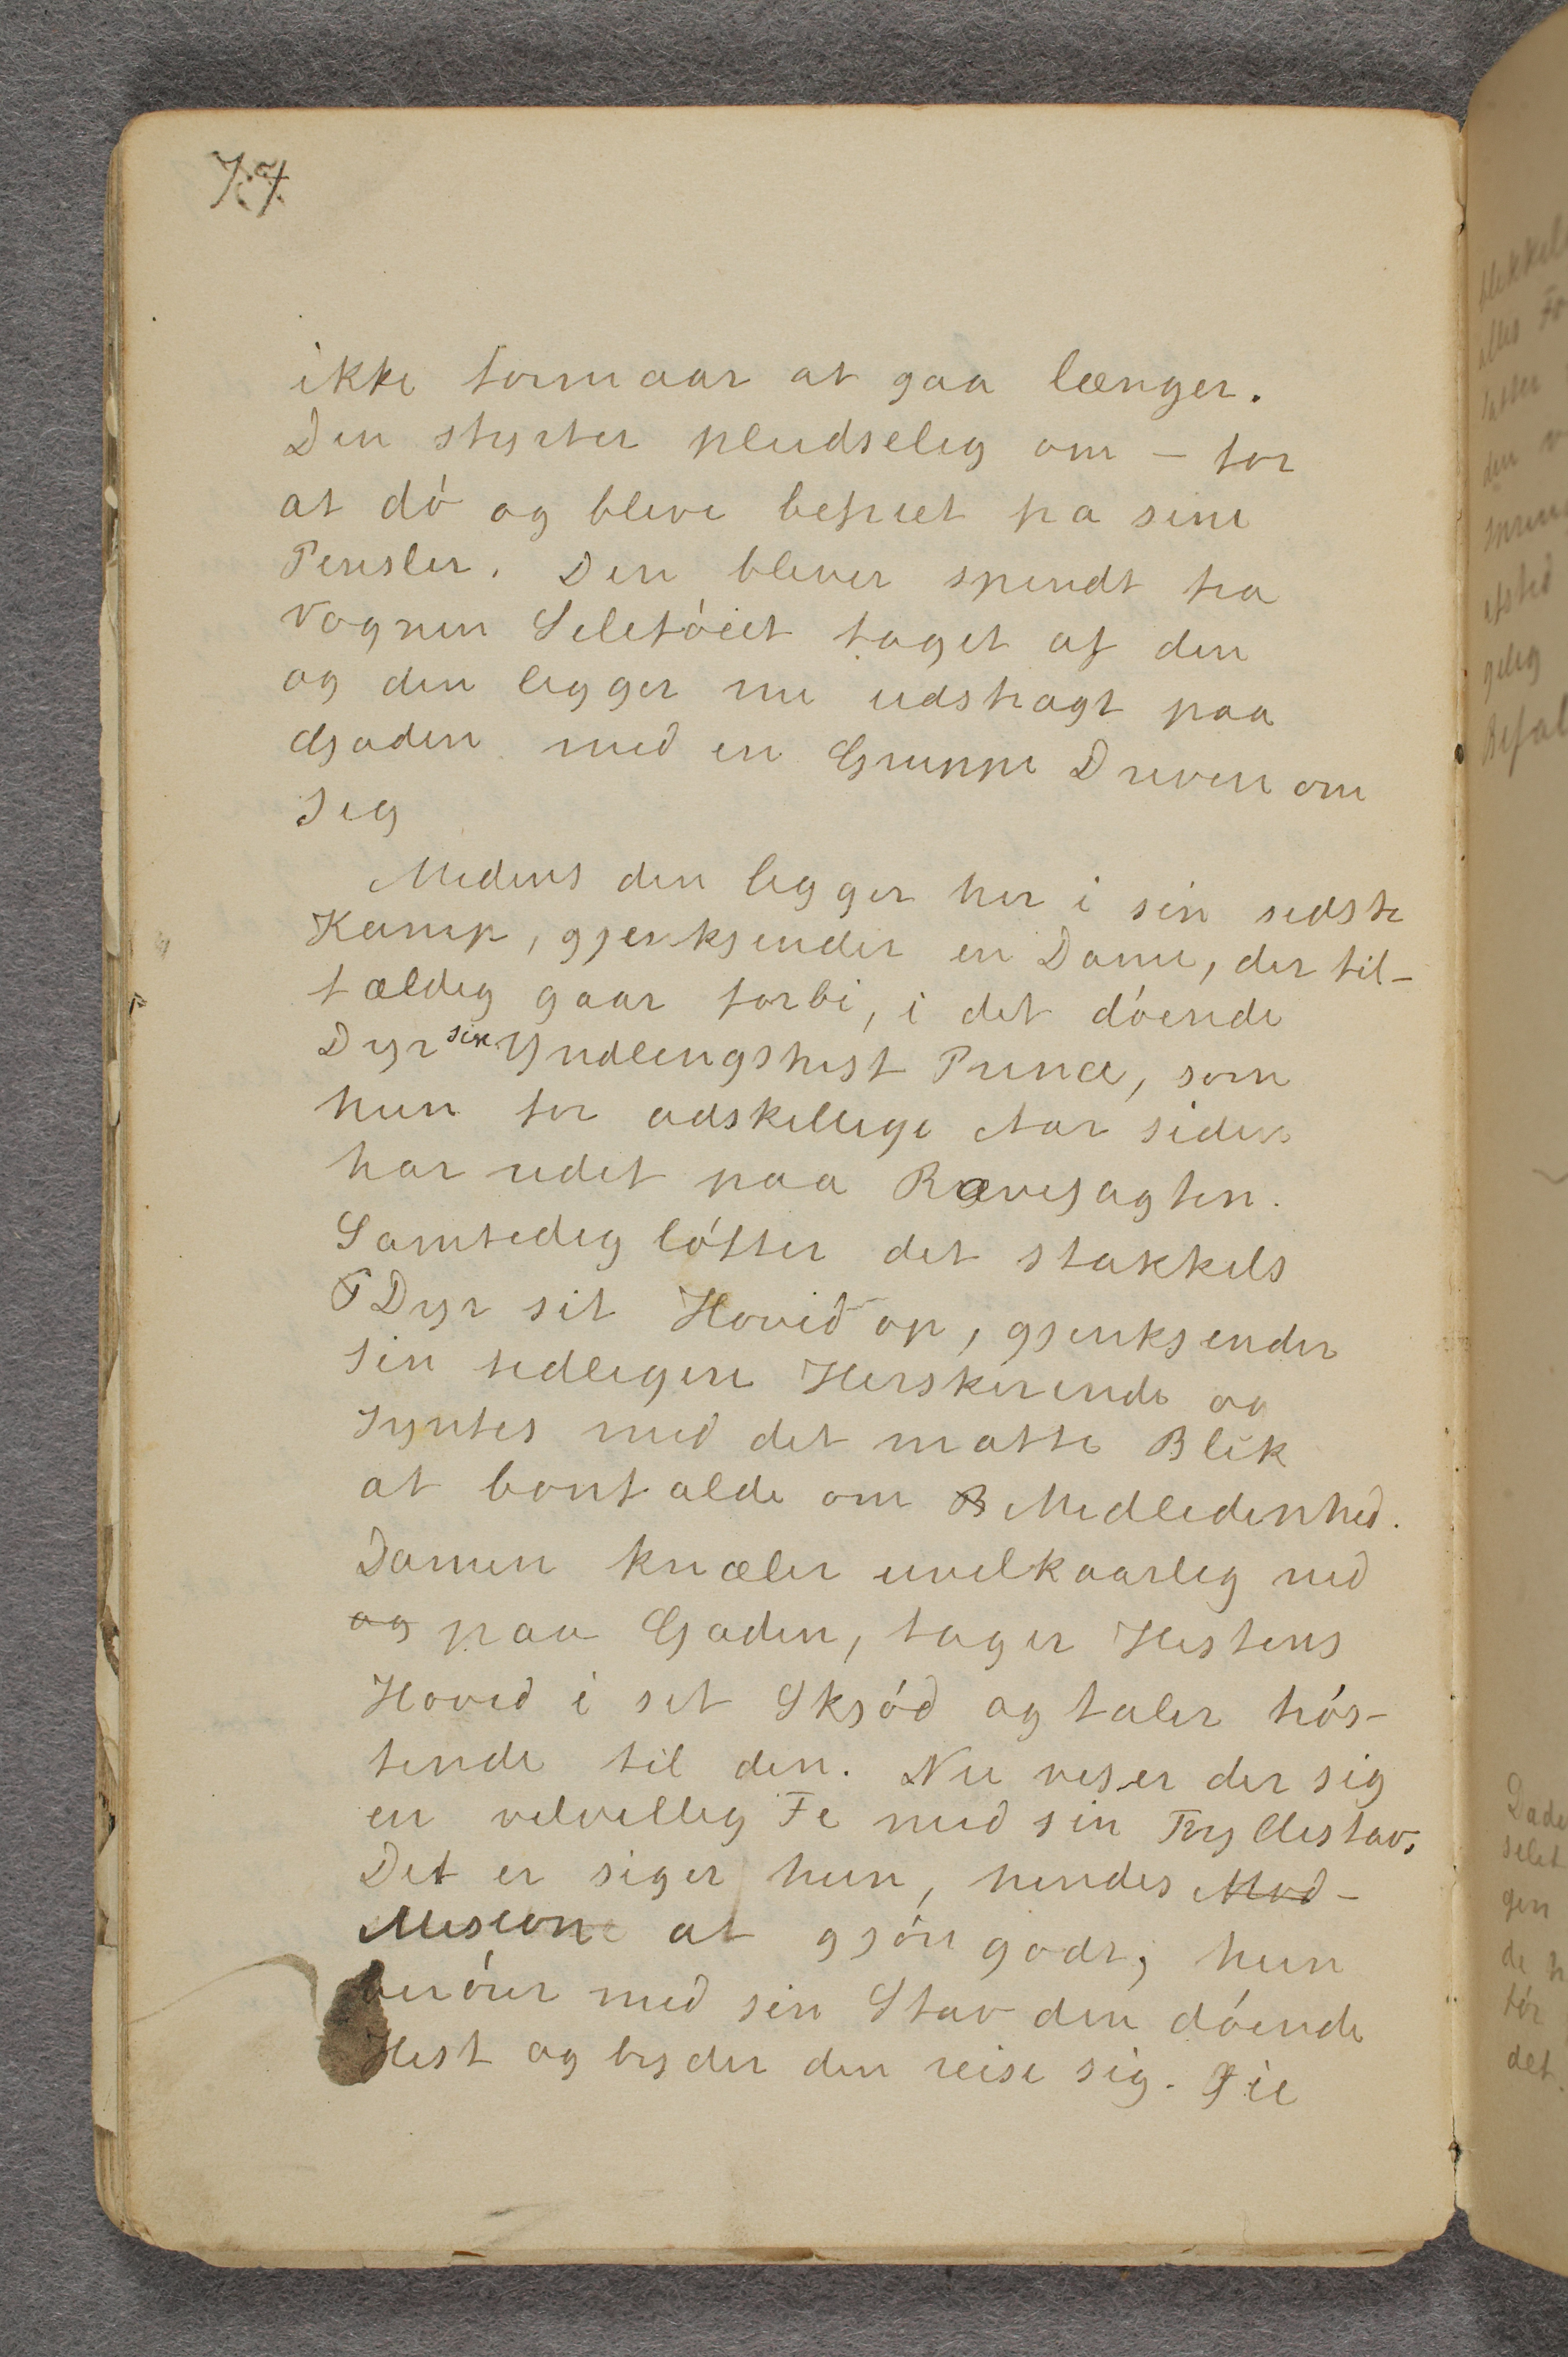 77.
ikke formaar at gaa længer.
Den styrter pludselig om – for
at dö og blive befriet fra sine
Pinsler. Den bliver spændt fra
Vognen Seletöiet taget af den
og den ligger nu udstragt paa
Gaden med en Gruppe Drivere om
sig
Medens den ligger her i sin sidste
Kamp, gjenkjender en Dame, der til-
fældig gaar forbi, i det döende
Dyr sin Yndlingshest Prince, som
hun for adskillige Aar siden
har ridet paa Rævejagten.
Samtidig löfter det stakkels
Dyr sit Hoved op, gjenkjender
sin tidligere Herskerinde og
syntes med det matte Blik
at bönfalde om Medlidenhed.
Damen knæler uvilkaarlig ned
og paa Gaden, tager Hestens
Hoved i sit Skjöd og taler trös-
tende til den. Nu viser der sig
en velvillig Fe med sin Tryllestav.
Det er siger hun, hendes Mod-
Mission at gjöre godt; hun
berörer med sin Stav den döende
Hest og byder den reise sig. Fie